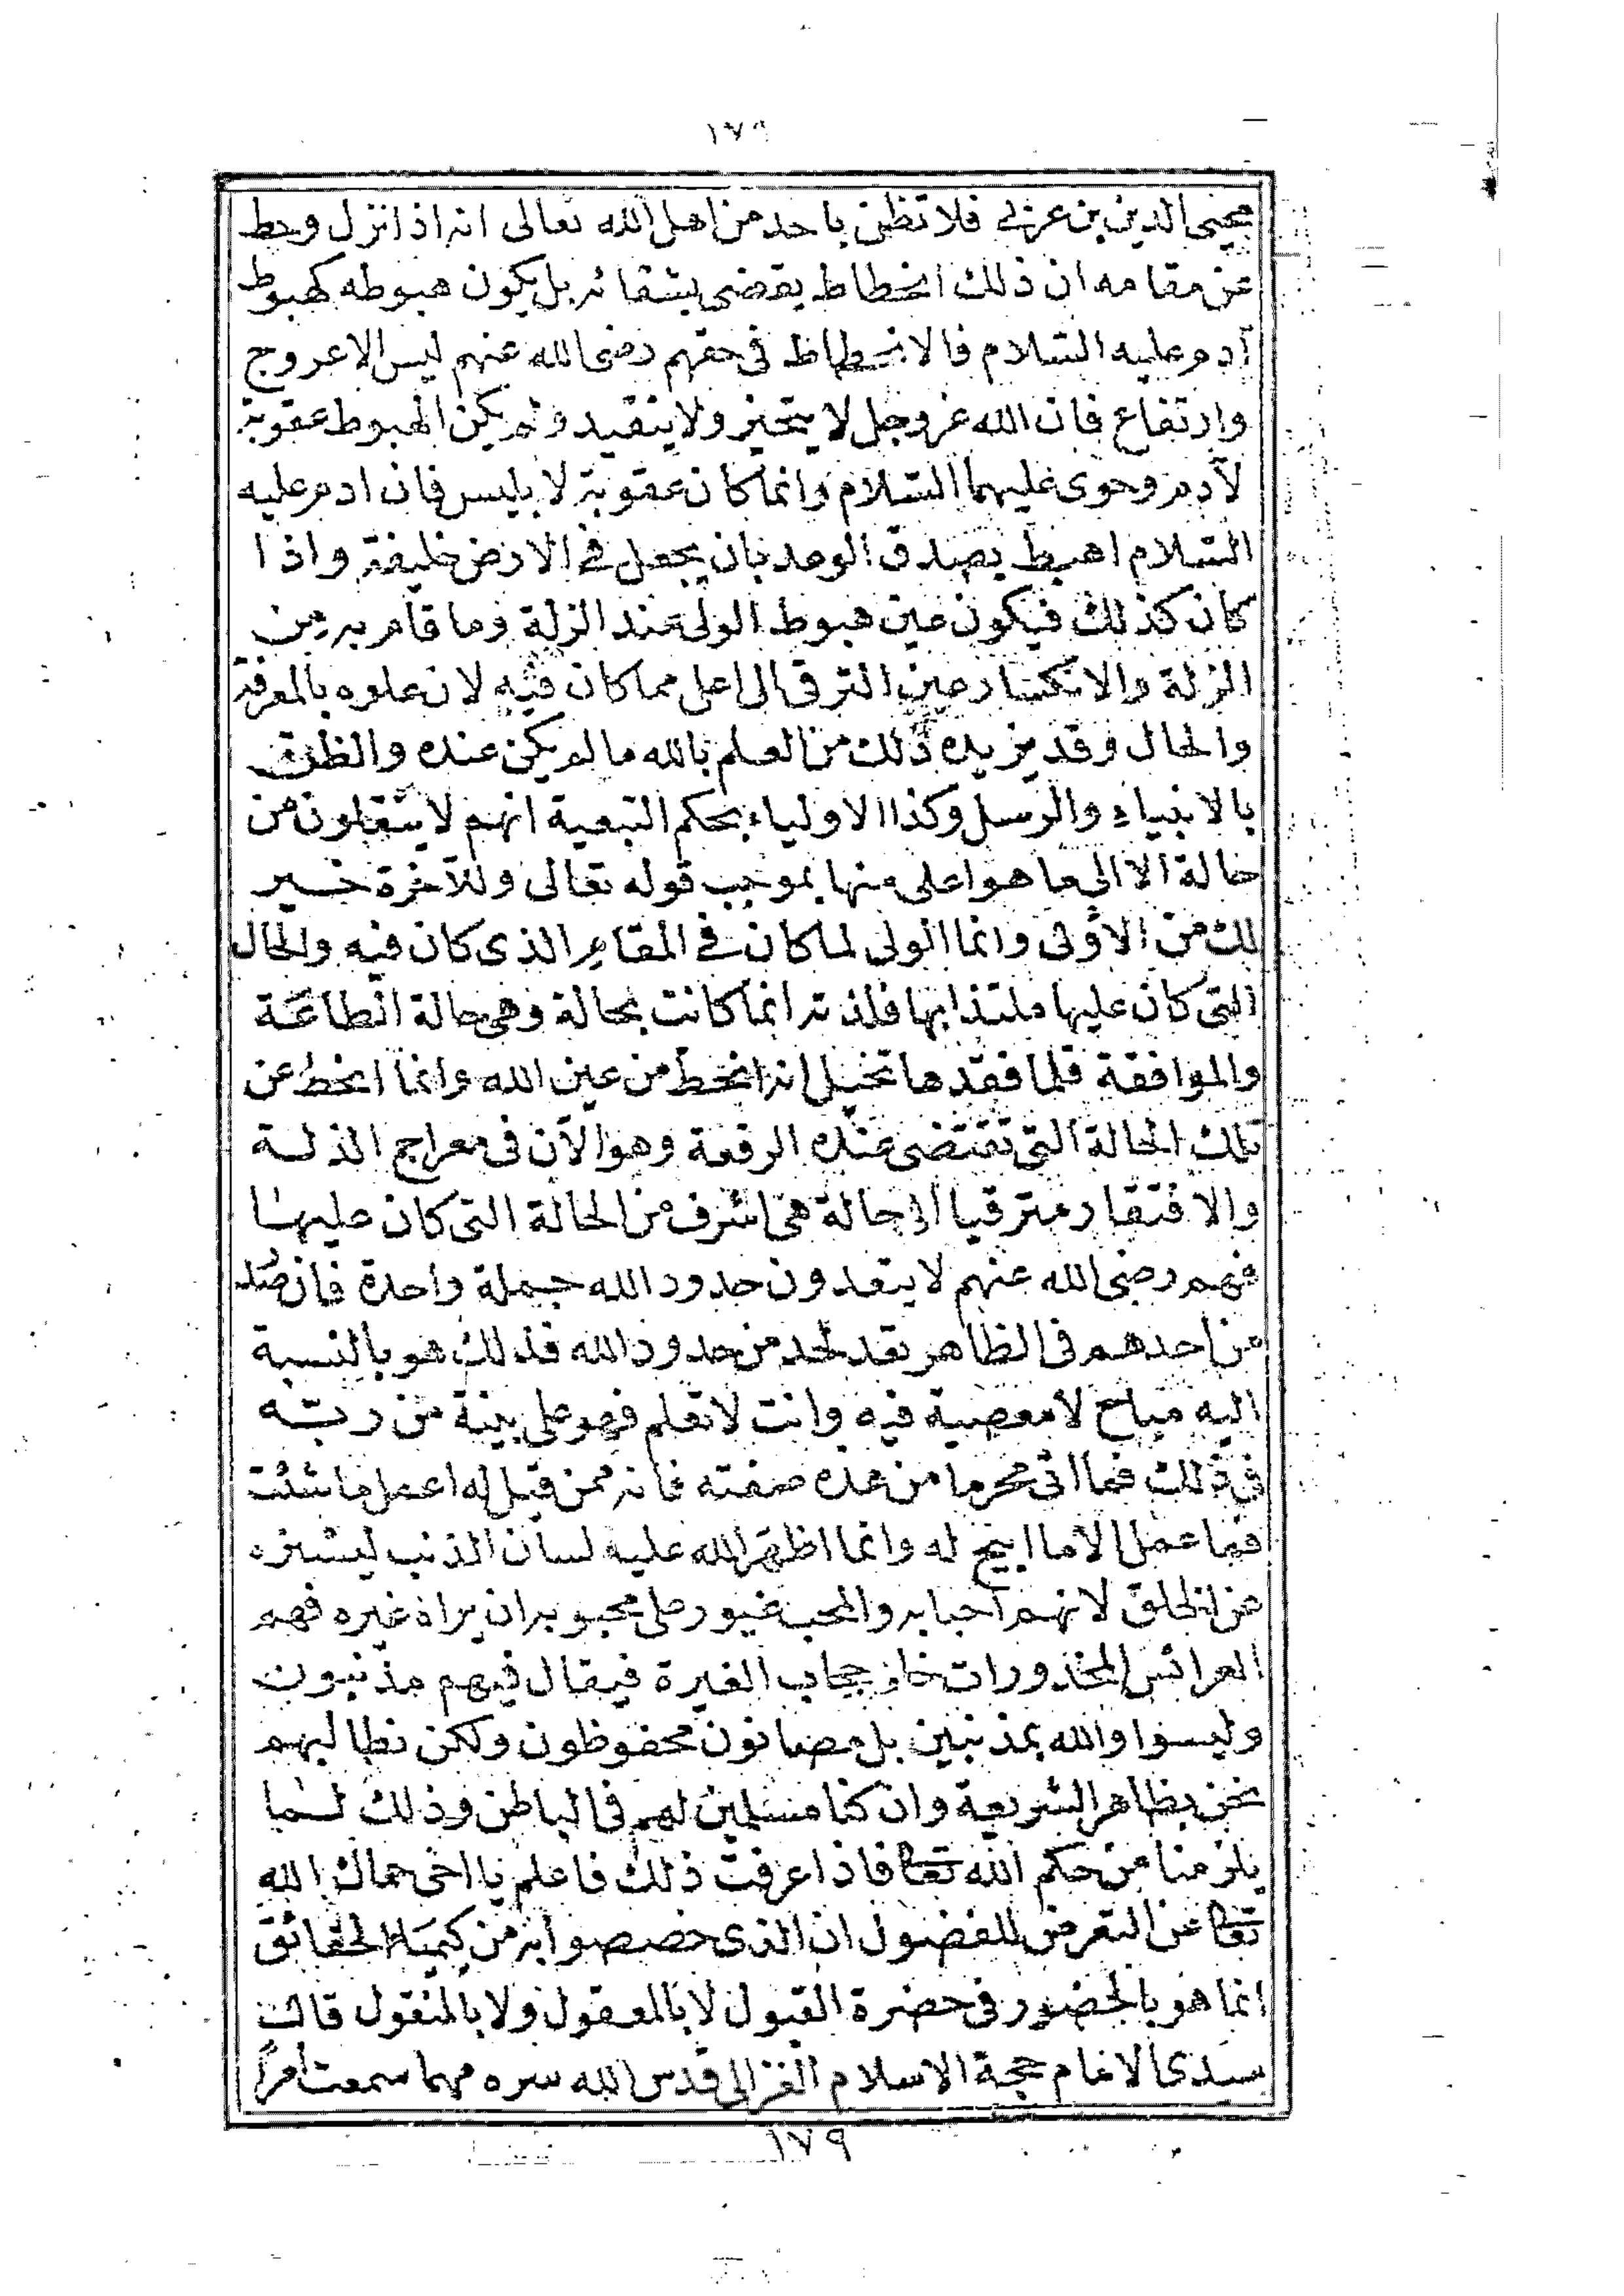 ١٧٩
محيى الدين بن عربى فلا تظن باحد من اهل الله تعالى انه اذا نزل وحط
عن مقامه ان ذلك انحطاط يقضى بشقائه بل يكون هبوطه كهبوط
آدم عليه السّلام فالانحطاط فى حقهم رضى الله عنهم ليس الا عروج
وارتفاع فان الله عز وجل لا يتحيز ولا يتقيد ولم يكن الهبوط عقوبة
لآدم وحوى عليهما السّلام وانما كان عقوبة لابليس فان ادم عليه
السّلام اهبط بصدق الوعد بان يجعل فى الارض خليفة واذا
كان كذلك فيكون عين هبوط الولى عند الزلة وما قام به من
الزلة والانكسار عين الترقى الى اعلى مما كان فيه لان علوه بالمعرفة
والحال وقد يزيده ذلك من العلم بالله مالم يكن عنده والظن
بالانبياء والرسل وكذا الاولياء بحكم التبعية انهم لا ينتقلون من
حالة الا الى ما هو اعلى منها بموجب قوله تعالى وللآخرة خير
لك من الاولى وانما الولى لما كان فى المقام الذى كان فيه والحال
التى كان عليها ملتذا بها فلذته انما كانت بحالة وهى حالة الطاعة
والموافقة فلما فقدها تخيل انه انحط من عين الله وانما انحط عن
تلك الحالة التى تقتضى عنده الرفعة وهو الآن فى معراج الذلة
والافتقار مترقيا الى حالة هى اشرف من الحالة التى كان عليها
فهم رضى الله عنهم لا يتعدون حدود الله جملة واحدة فان صدر
من احدهم فى الظاهر تعد لحد من حدود الله فذلك هو بالنسبة
اليه مباح لا معصية فيه وانت لا تعلم فهو على بينة من ربّه
فى ذلك فما اتى محرما من هذه صفته فانه ممن قيل له اعمل ما شئت
فما عمل الا ما ابيح له وانما اظهر الله عليه لسان الذنب ليستره
من الخلق لانهم احبابه والمحب غيور على محبوبه ان يراه غيره فهم
العرائس المخدورات خلف حجاب الغيرة فيقال فيهم مذنبون
وليسوا والله بمذنبين بل مصانون محفوظون ولكن نطالبهم
نحن بظاهر الشريعة وان كنا مسلمين لهم فى الباطن وذلك لما
يلزمنا من حكم الله تعا فاذا عرفت ذلك فاعلم يا اخى حماك الله
تعا عن التعرض للفضول ان الذى خصصوا به من كيمياء الحقائق
انما هو بالحضور فى حضرة القبول لا بالمعقول ولا بالمنقول قال
سيدى الامام حجة الاسلام الغزالى قدس الله سره مهما سمعت امراً
١٧٩